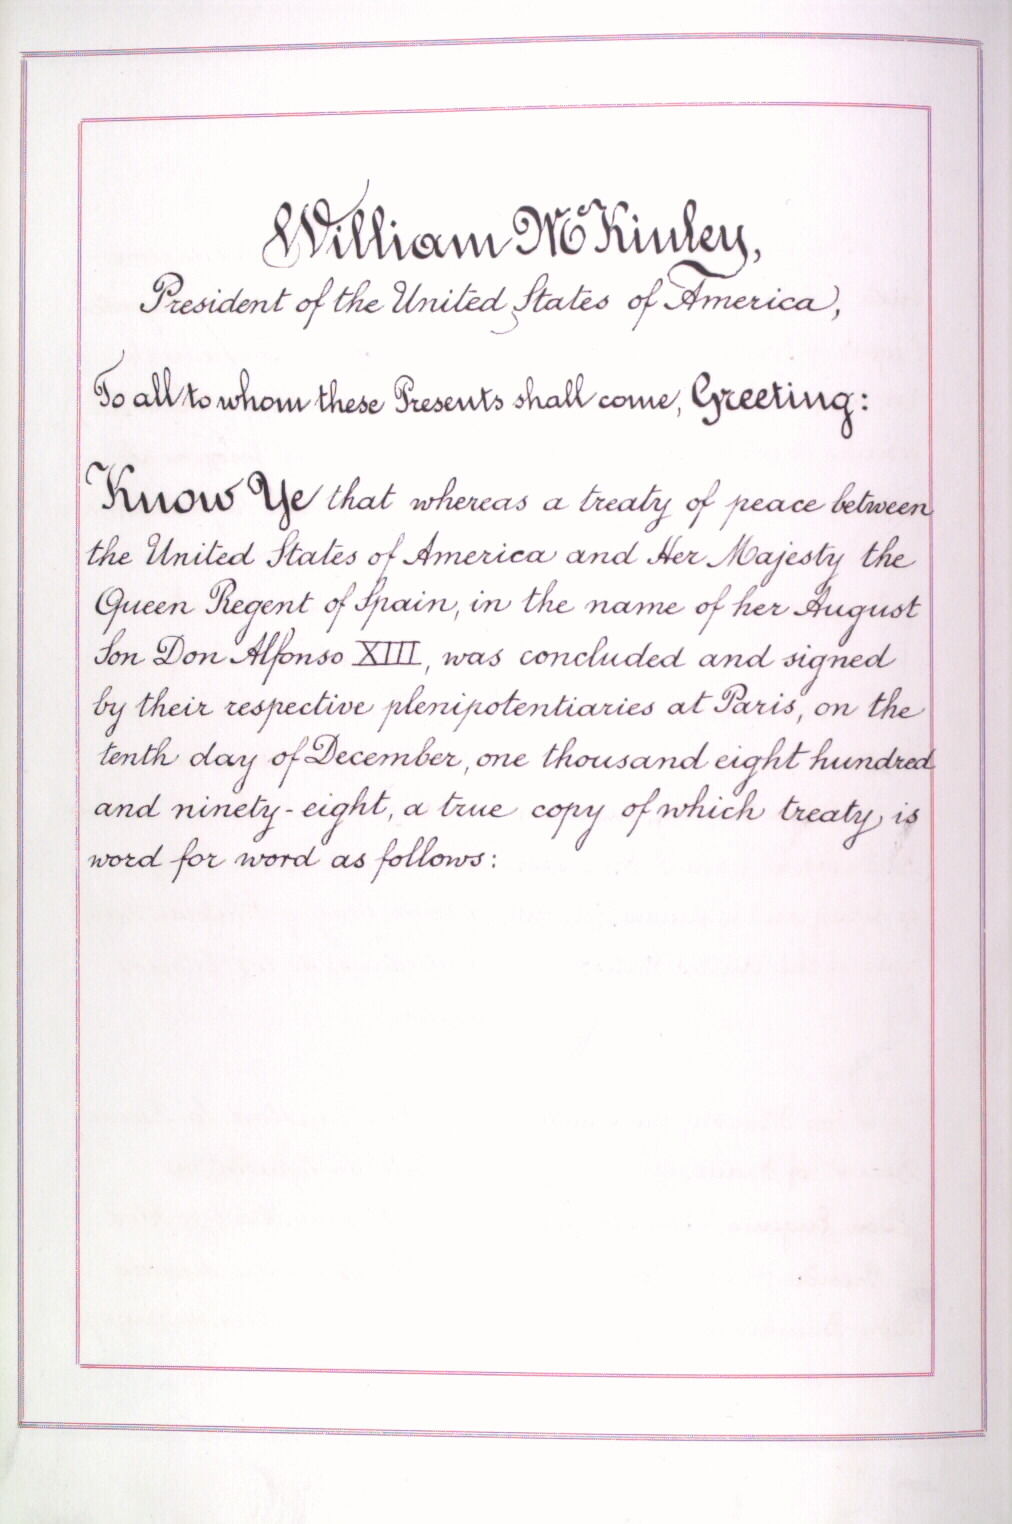 William McKinley,
President of the United States of America,
To all to whom these Presents shall come, Greeting:
Know Ye that whereas a treaty of peace between
the United States of America and Her Majesty the
Queen Regent of Spain, in the name of her August
Son Don Alfonso XIII, was concluded and signed
by their respective plenipotentiaries at Paris, on the
tenth day of December, one thousand eight hundred
and ninety-eight, a true copy of which treaty is
word for word as follows: